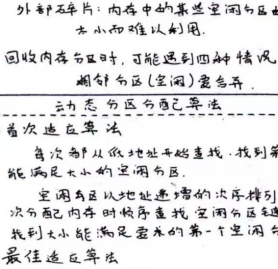 外部碎片：内存中的某些空闲分区由
大小而难以利用.
回收内存分区时，可能遇到四种情况
相邻分区(空闲)要合并.
动态分区分配算法
首次适应算法
每次都从低地址开始查找，找到第
能满足大小的空闲分区.
空闲分区以地址递增的次序排列
次分配内存时顺序查找空闲分区链
找到大小能满足要求的第一个空闲分
最佳适应算法